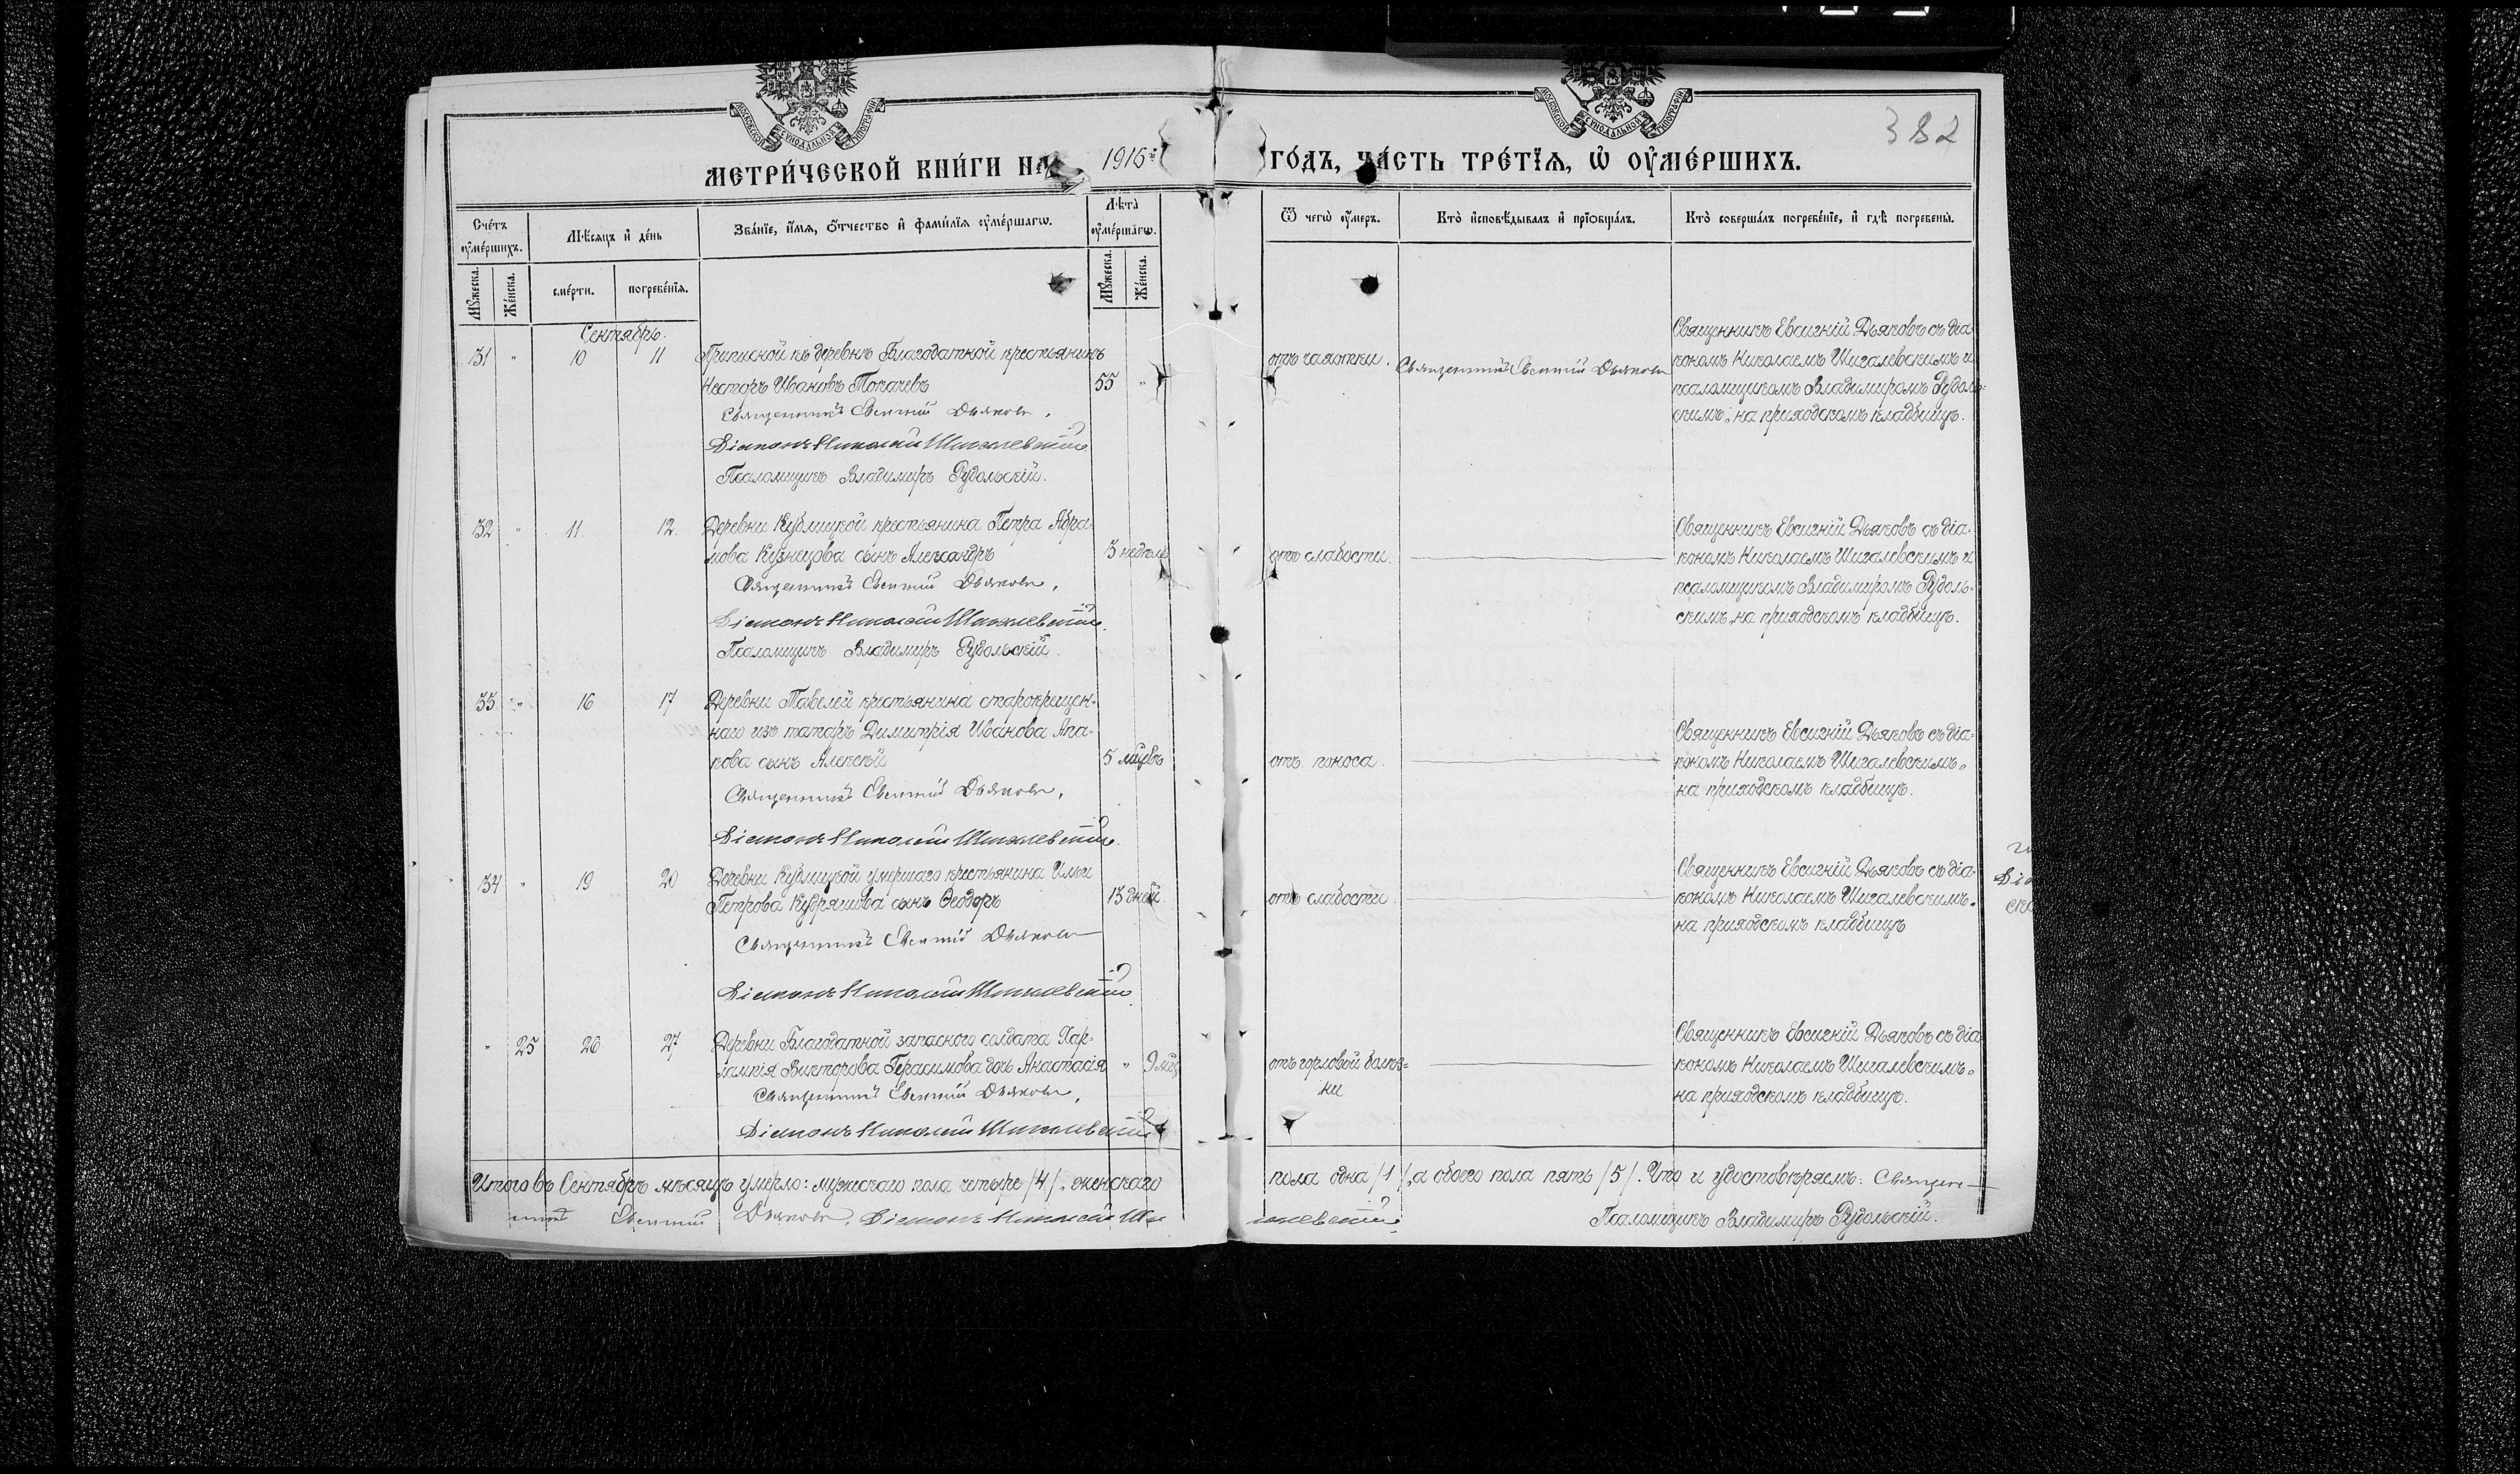 МОСКОВСКОЙ СѴНОДАЛЬНОЙ ТИПОГРАФІИ
МОСКОВСКОЙ СѴНОДАЛЬНОЙ ТИПОГРАФІИ
382
МЕТРИ́ЧЕСКОЙ КНИ́ГИ НА 1916й ГО́ДЪ, ЧА́СТЬ ТРЕ́ТЇѦ, Ѡ҆ ОУ҆МЕ́РШИХЪ.
Сче́тъ оу҆ме́ршихъ.
Мꙋ́жеска.
Же́нска.
Мѣ́сѧцъ и҆ де́нь
сме́рти.
погребе́нїѧ.
Зва́нїе, и҆́мѧ, ѻ҆́тчество и҆ фами́лїѧ оу҆ме́ршагѡ.
Лѣ́та оу҆ме́ршагѡ.
Мꙋ́жеска.
Же́нска.
Ѿ чегѡ̀ оу҆́меръ.
Кто̀ и҆сповѣ́дывалъ и҆ прїѡбща́лъ.
Кто̀ соверша́лъ погребе́нїе, и҆ гдѣ̀ погребены̀.
Сентябрь.
31 " 10 11 Приписной къ деревнѣ Благодатной крестьянинъ
Несторъ Ивановъ Топачевъ 55 "
Священникъ Евсигній Дьяковъ.
Діаконъ Николай Шигалевскій
Псаломщикъ Владимиръ Рудольскій.
отъ чахотки. Священникъ Евсигній Дьяковъ
Священникъ Евсигній Дьяковъ съ діа-
кономъ Николаемъ Шигалевскимъ и
псаломщикомъ Владимиромъ Рудоль-
скимъ, на приходскомъ кладбищѣ.
32 " 11. 12. Деревни Кублицкой крестьянина Петра Абра-
мова Кузнецова сынъ Александръ 3 недѣли
Священникъ Евсигній Дьяковъ.
Діаконъ Николай Шигалевскій.
Псаломщикъ Владимиръ Рудольскій.
отъ слабости.
Священникъ Евсигній Дьяковъ съ діа-
кономъ Николаемъ Шигалевскимъ и
псаломщикомъ Владимиромъ Рудоль-
скимъ, на приходскомъ кладбищѣ.
33 " 16 17 Деревни Тавелей крестьянина старокрещен-
наго изъ татаръ Димитрія Иванова Апа-
кова сынъ Алексѣй 5 мѣсѣвъ
Священникъ Евсигній Дьяковъ.
Діаконъ Николай Шигалевскій.
отъ поноса.
Священникъ Евсигній Дьяковъ съ діа-
кономъ Николаемъ Шигалевскимъ,
на приходскомъ кладбищѣ.
34 " 19 20 Деревни Кублицкой умершаго крестьянина Ильи
Петрова Кудряшова сынъ Ѳеодоръ 13 дней.
Священникъ Евсигній Дьяковъ
Діаконъ Николай Шигалевскій.
отъ слабости.
Священникъ Евсигній Дьяковъ съ діа-
кономъ Николаемъ Шигалевскимъ,
на приходскомъ кладбищѣ
" 25 26 27 Деревни Благодатной запаснаго солдата Хар-
лампія Викторова Герасимова дочь Анастасія " 9 мѣс
Священникъ Евсигній Дьяковъ.
Діаконъ Николай Шигалевскій
отъ горловой болѣз-
ни
Священникъ Евсигній Дьяковъ съ діа-
кономъ Николаемъ Шигалевскимъ,
на приходскомъ кладбищѣ.
Итого въ Сентябрѣ мѣсяцѣ умерло: мужескаго пола четыре /4/, женскаго пола одна /1/, а обоего пола пять /5/. Что и удостовѣряемъ: Священ-
никъ Евсигній Дьяковъ, Діаконъ Николай Шигалевскій. Псаломщикъ Владимиръ Рудольскій.